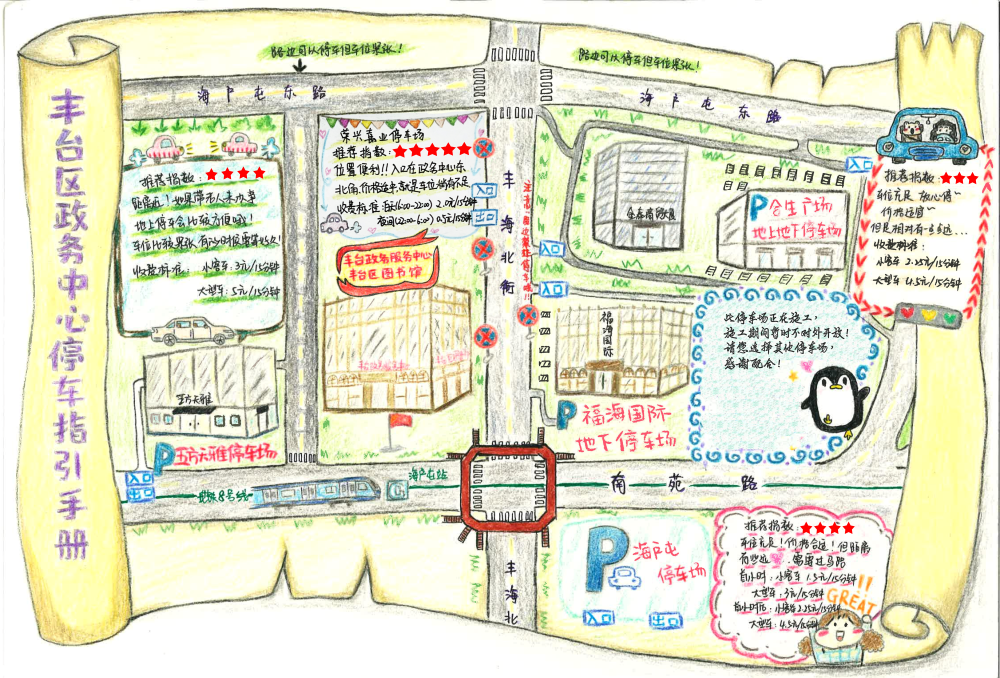 丰台区政务中心停车指引手册
路边可以停车但车位紧张！
路边可以停车但车位紧张！
海户屯东路
海户屯东路
推荐指数：★★★★
距离近！如果带老人来办事
地上停车会比较方便哦！
车位比较紧张，有时候需要等好久！
收费标准：小客车：3元/15分钟
大型车：5元/15分钟
五方天雅
P五方天雅停车场
荣兴嘉业停车场
推荐指数：★★★★★
位置便利！！入口在政务中心东
北角，价格适中，就是车位稍有不足
收费标准：白天(6:00-22:00) 2.0元/15分钟
夜间(22:00-6:00) 0.5元/15分钟
入口
出口
丰台政务服务中心
丰台区图书馆
丰海北街
注意！
入口
入口
P合生广场
地上地下停车场
入口
推荐指数：★★★
车位充足 放心停~
价格适宜~
但是相对有一点点远...
收费标准：
小客车 2.25元/15分钟
大型车 4.5元/15分钟
福海国际
P福海国际
地下停车场
此停车场正在施工，
施工期间暂时不对外开放！
请您选择其他停车场，
感谢配合！
入口
出口
地铁8号线
海户屯站
南苑路
丰海北
P海户屯
停车场
入口
出口
推荐指数：★★★★
车位充足！价格合适！但距离
有些远，需要过马路
首小时：小客车 1.5元/15分钟
大型车：3元/15分钟
首小时后：小客车2.25元/15分钟
大型车：4.5元/15分钟
!!
GREAT